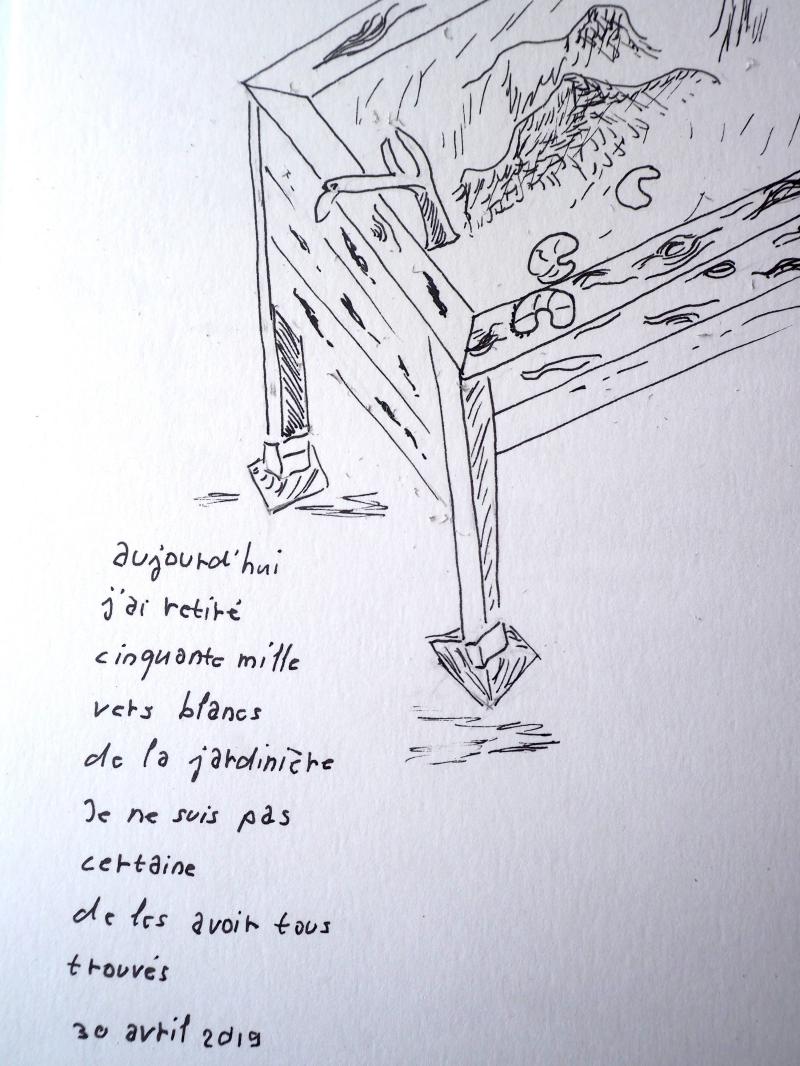 aujourd'hui
j'ai retiré
cinquante mille
vers blancs
de la jardinière
Je ne suis pas
certaine
de les avoir tous
trouvés
30 avril 2019